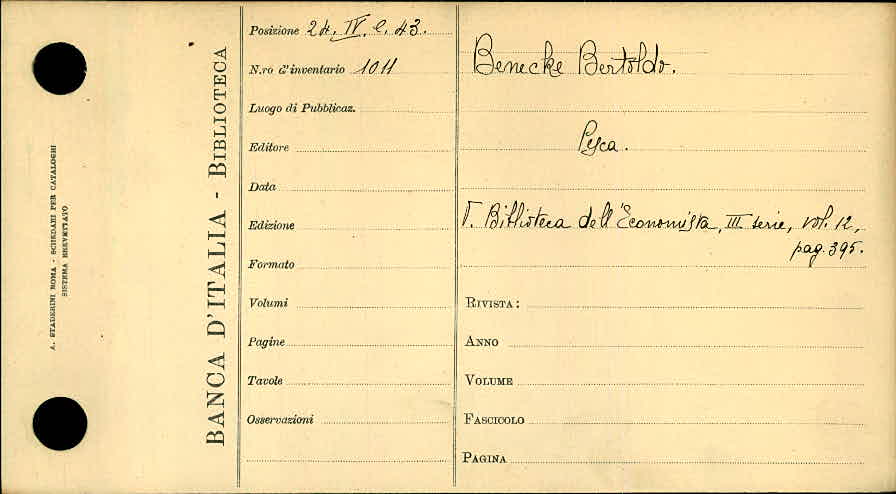 A. STADERINI ROMA - SCHEDARI PER CATALOGHI
SISTEMA BREVETTATO
BANCA D'ITALIA - BIBLIOTECA
Posizione 24. IV. e. 43.
N.ro d'inventario 1011
Luogo di Pubblicaz.
Editore
Data
Edizione
Formato
Volumi
Pagine
Tavole
Osservazioni
Benecke Bertoldo.
Pesca.
V. Biblioteca dell'Economista, III serie, vol. 12,
pag. 395.
RIVISTA:
ANNO
VOLUME
FASCICOLO
PAGINA